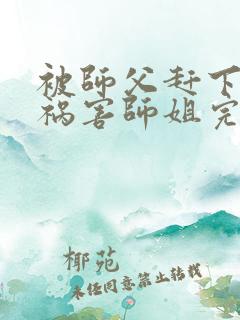 被師父赶下
祸害師姐完
椰苑
未经同意禁止转载